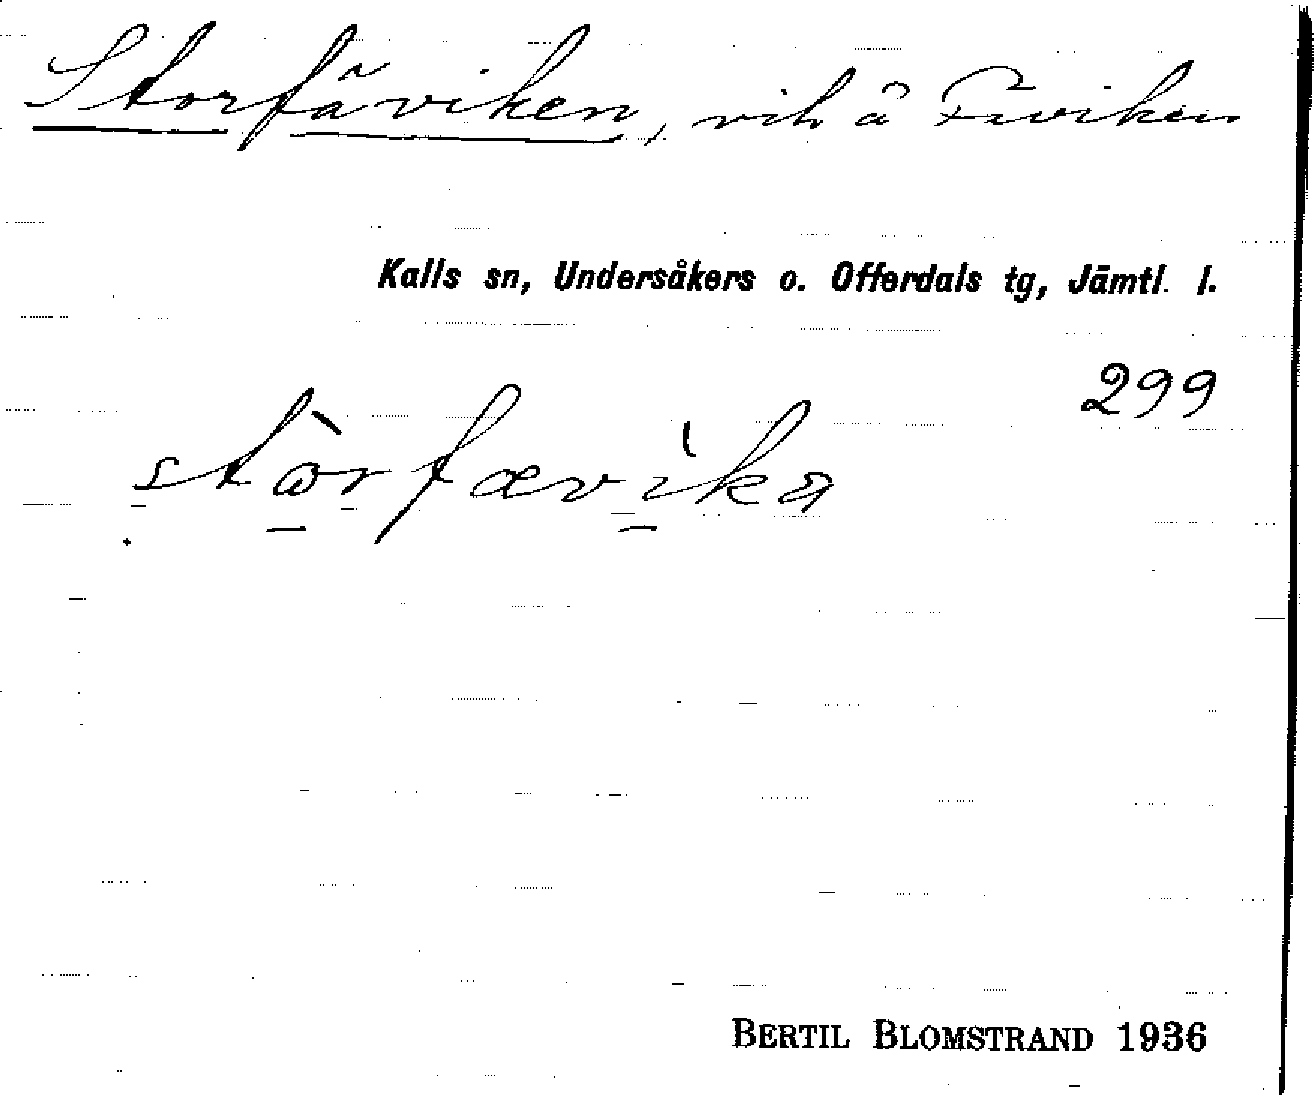 Storfäviken, vik å Fäviken
Kalls sn, Undersåkers o. Offerdals tg, Jämtl. l.
299
stòrfævika
BERTIL BLOMSTRAND 1936